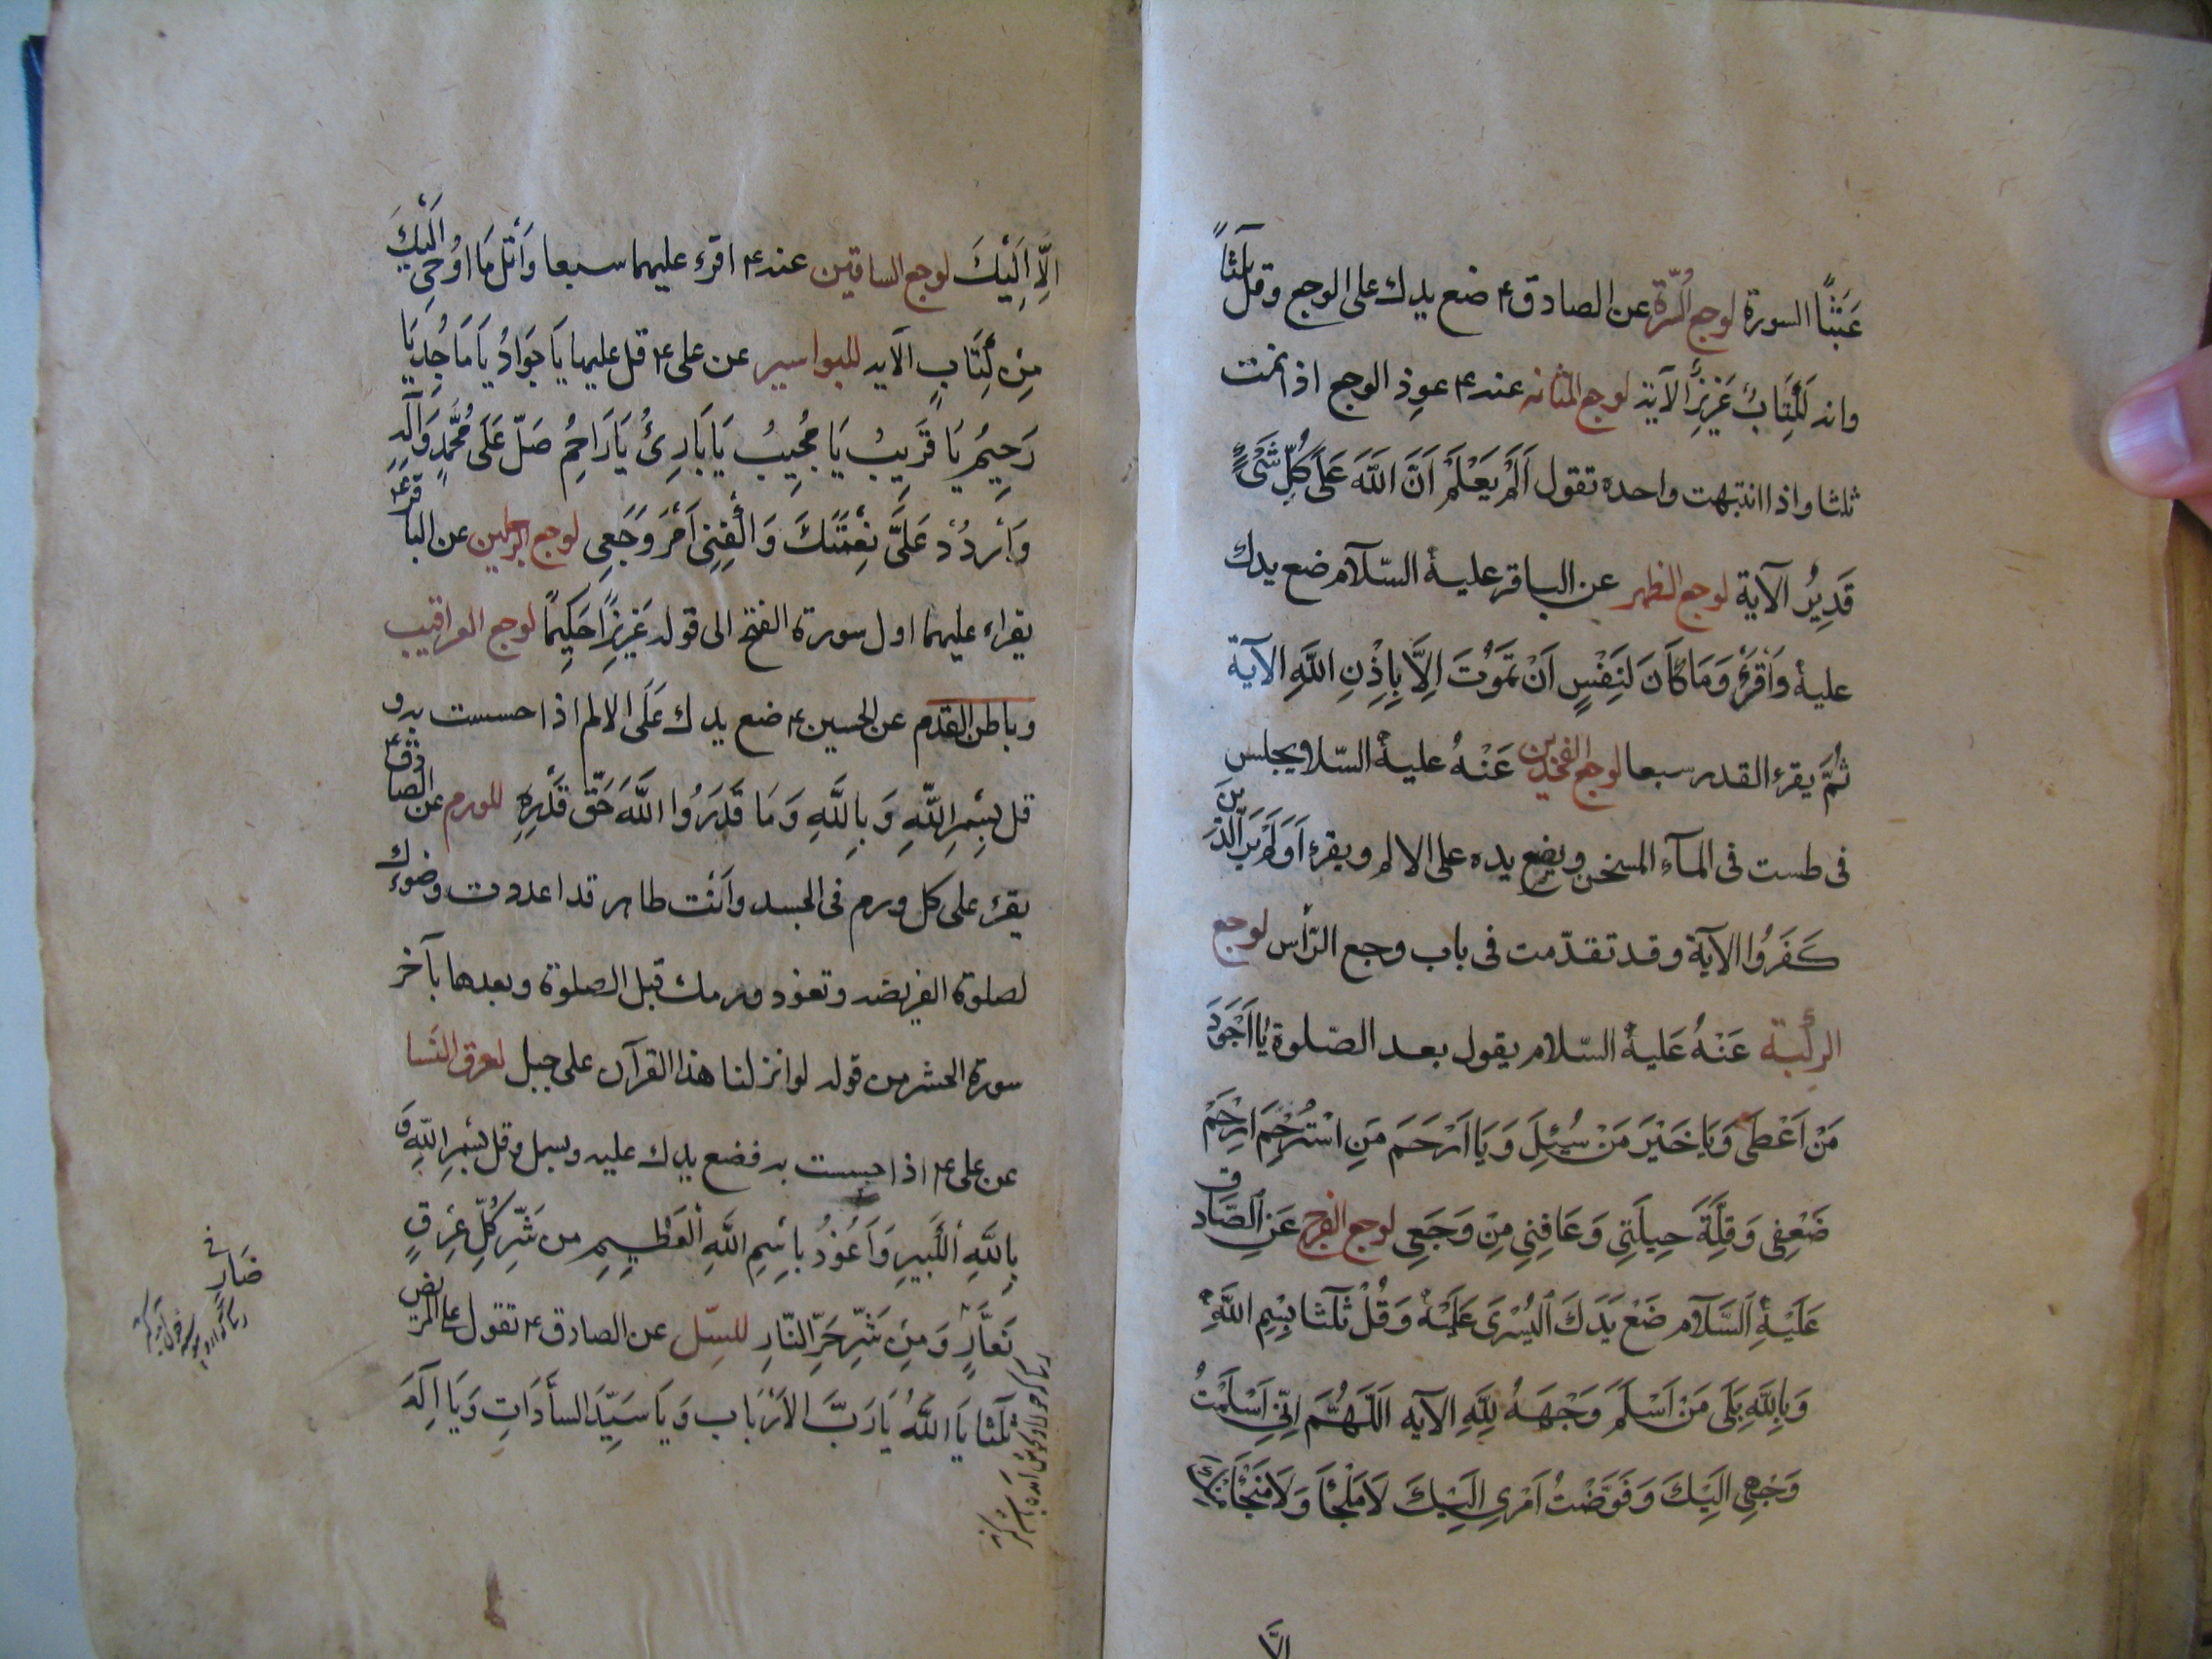 عَبَثًا السورة لوجع السُّرّة عن الصادق ع ضع يدك على الوجع وقل ثلثاً
وانه لَكِتَابٌ عَزِيزٌ الآية لوجع المثانه عنه ع عوذ الوجع اذا نمت
ثلثا واذا انتبهت واحده تقول اَلَمْ يَعْلَمْ اَنَّ اللَّهَ عَلَى كُلِّ شَىْءٍ
قَدِيرٌ الآية لوجع الظهر عن الباقر عليه السّلام ضع يدك
عليه وَاقْرَءْ وَمَا كَانَ لِنَفْسٍ اَنْ تَمَوُتَ اِلَّا بِاِذْنِ اللَّهِ الآية
ثُمَّ يقرء القدر سبعا لوجع الفخذين عَنْهُ عليه السّلام يجلس
فى طست فى المآء المسخن ويضع يده على الالم ويقرء اَوَلَمْ يَرَ الَّذِينَ
كَفَرُوا الآية وقد تقدّمت فى باب وجع الرّأس لوجع
الركبة عَنْهُ عَليهِ السّلام يقول بعد الصّلوة يَا اَجْوَدَ
مَنْ اَعْطَى وَيَا خَيْرَ مَنْ سُئِلَ وَيَا اَرْحَمَ مَنِ اسْتُرْحِمَ اِرْحَمْ
ضَعْفِى وَقِلَّةَ حِيلَتِى وَعَافِنِى مِنْ وَجَعِى لوجع الفرج عَنِ الصَّادق
عَلَيْهِ السَّلآم ضَعْ يَدَكَ الْيُسْرَى عَلَيْهِ وَقُلْ ثَلٰثا بِسْمِ اللَّهِ
وَبِاللَّهِ بَلَى مَنْ اَسْلَمَ وَجْهَهُ لِلَّهِ الآيه اَللَّهُمَّ اِنِّى اَسْلَمْتُ
وَجْهِى اِلَيْكَ وَفَوَّضْتُ اَمْرِى اِلَيْكَ لَا مَلْجَأَ وَلَا مَنْجَأَ مِنْكَ
اِلَّا
اِلَّا اِلَيْكَ لوجع الساقين عنه ع اقرء عليهما سبعا وَاتْلُ مَا اُوحِىَ اِلَيْكَ
مِنْ كِتَابِ الآيه للبواسير عن على ع قل عليها يَا جَوَادُ يَا مَاجِدُ يَا
رَحِيمُ يَا قَرِيبُ يَا مُجِيبُ يَا بَارِئُ يَا رَاحِمُ صَلِّ عَلَى مُحَمَّدٍ وَآلِهِ
وَارْدُدْ عَلَىَّ نِعْمَتَكَ وَاكْفِنِى اَمْرَ وَجَعِى لوجع الرجلين عن الباقر ع
يقراء عليهما اول سورة الفتح الى قوله عَزِيزًا حَكِيمًا لوجع العراقيب
وباطن القدم عن الحسين ع ضع يدك عَلَى الالم اذا احسست به و
قل بِسْمِ اللَّهِ وَبِاللَّهِ وَمَا قَدَرُوا اللَّهَ حَقَّ قَدْرِهِ للورم عن الصادق ع
يقرء على كل ورم فى الجسد وَاَنْت طاهر قد اعددت وضوءك
لصلوة الفريضه وتعوذ ورمك قبل الصلوة وبعدها بآخر
سورة الحشر من قوله لو انزلنا هذا القرآن على جبل لعرق النسا
عن على ع اذا احسست به فضع يدك عليه وبسمل وقل بِسْمِ اللَّهِ وَ
بِاللَّهِ الْكَبِيرِ وَاَعُوذُ بِاسْمِ اللَّهِ الْعَظِيمِ من شَرِّ كُلِّ عِرْقٍ
نَعَّارٍ وَمِنْ شَرِّ حَرِّ النَّارِ للسِّل عن الصادق ع تقول على المريض
ثلثا يَا اللَّهُ يَا رَبَّ الاَرْبَاب وَيَا سَيِّدَ السادَاتِ وَيَا اِلَهَ